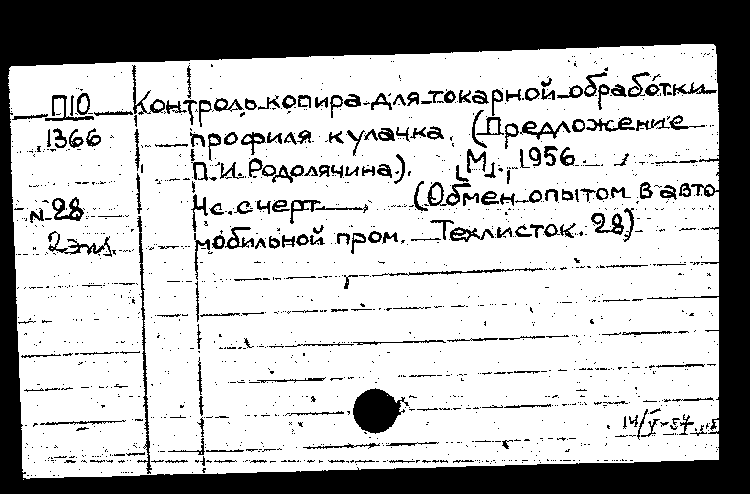 П10 Контроль копира для токарной обработки
1366 профиля кулачка. (Предложение
П.И. Родолячина). [М.], 1956.
№28 4с. с черт. (Обмен опытом в авто-
2 экз. мобильной пром. Техлисток. 28)
14/V-57